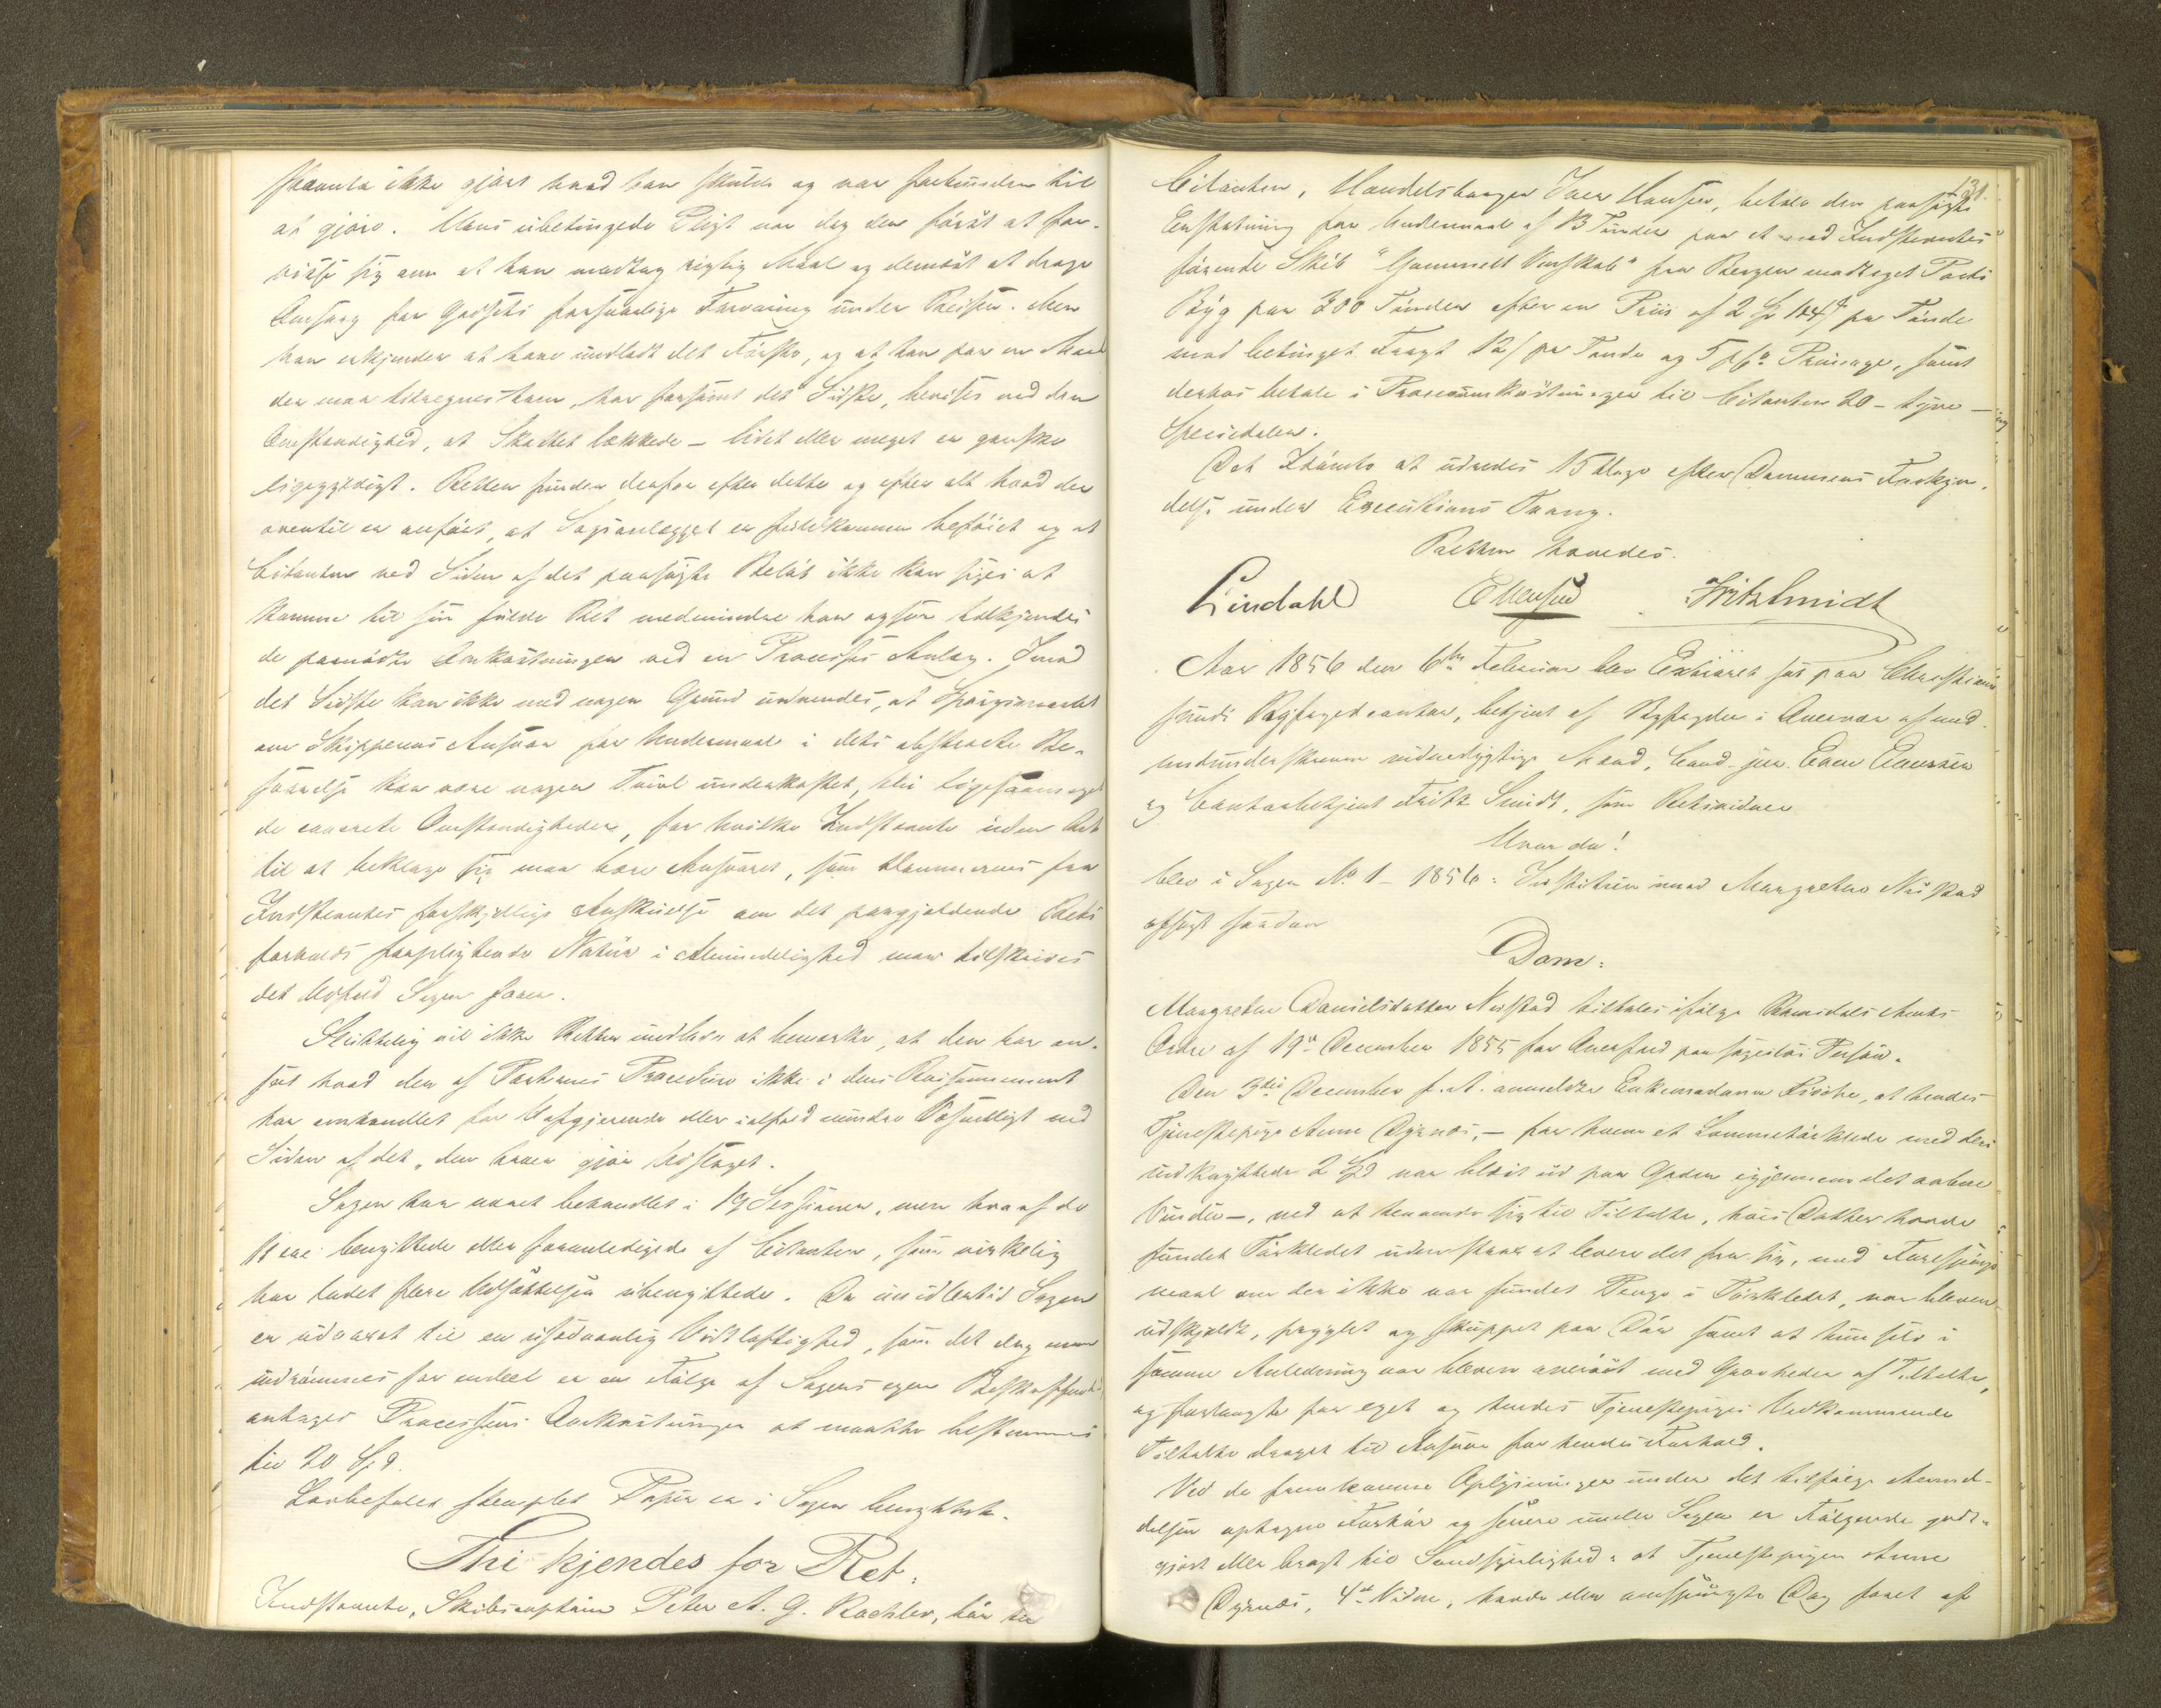 ikke gjort hvad han skulde og var forbunden til
at gjøre. Hans ubetingede Pligt var dog den først at for-
visse sig om at han modtog rigtig Maal og dernæst at drage
Omsorg for Godsets forsvarlige Forvaring under Reisen. Men
han erkjender at have undladt det Første, og at han paa en Maade
der maa tilregnes ham, har forsømt det Sidste, bevises ved den
Omstændighed, at Skibet lækkede – lidet eller meget er ganske
ligegyldigt. Retten finder derfor efter dette og efter alt hvad der
oventil er anført, at Sagsanlægget er fuldkommen beføiet og at
Citanten ved Siden af det paasøgte Beløb ikke kan siges at
komme til sin fulde Ret medmindre han ogsaa tilkjendes
de Omkostninger ved en Processes Anlæg. Imod
det Sidste kan ikke med nogen Grund indvendes, at Spørgsmaalet
om Skipperens Ansvar for Undermaal i dets abstracte Be-
skaffenhed kan være nogen Tvivl underkastet,
de concrete Omstændigheder, for hvilke Indstevnte uden Ret
til at beklage sig maa bære Ansvaret, som
Indstevntes forskjellige Anskuelse om det paagjældende Rets
forholds forpligtende Natur i Almindelighed maa tilskrives
det Udfald Sagen faaer.
Sluttelig vil ikke Retten undlade at bemærke, at den har an-
seet hvad den af Parternes Procedure ikke i dens Raisonnement
har omhandlet for Uafgjørende eller ialfald mindre Væsentligt ved
Siden af det, den haver gjør Udslaget.
Sagen har været behandlet i 19 Sessioner, men hvoraf de
11 ere benyttede eller foranledigede af Citanten, som virkelig
har ladet flere Udsættelser ubenyttede. Da imidlertid Sagen
er udvoxet til en usædvanlig Vidtløftighed, som det dog maa
indrømmes for endeel er en Følge af Sagens egen Beskaffenhed
antages Processens Omkostninger at maatte bestemmes
til 20 Spd.
Lovbefalet stemplet Papir er i Sagen benyttet.
Thi kjendes for Ret:
Indstevnte, Skibscaptain Peter A. G. Kaehler, bør til
131.
Citanten, Handelsborger Iver Hansen, betale den paasøgte
Erstatning for Undermaal af 13 Tønder paa et med Indstevntes
førende Skib "Gammelt Venskab" fra Bergen modtaget Parti
Byg paa 300 Tønder efter en Priis af 2 Spd pr Tønde
med betinget Fragt 12 ß pr Tønde og 5 pCt. Primage, samt
derhos betale i Procesomkostninger til Citanten 20 – tyve –
Speciedaler.
Det Idømte at udredes 15 Dage efter Dommens Forkyn-
delse under Executions Tvang.
Retten hævedes.
Lindahl E Fritz Smidt
Aar 1856 den 6te Februar blev Extraret sat paa Christian-
sunds Byfogedcontor, betjent af Byfogden i Overvær af med-
undunderskrevne vidnedygtige Mænd, Cand. jur. Even
og Contorbetjent Fritz Smidt, som Retsvidner
Hvor da!
blev i Sagen No 1 – 1856: Justitien imod Margrethe Nistad
afsagt saadan
Dom:
Margrethe Danielsdatter Nistad tiltales ifølge Romsdals Amts
Ordre af 19de December 1855 for Overfald paa sagesløs Person.
Den 3die December f. A. anmeldte Enkemadame Fische, at hendes
Tjenestepige Anne Dyrnæs, – for hvem et Lommetørklæde med deri
indknyttede 2 Spd var blæst ud paa Gaden igjennem det aabne
Vindu –, ved at henvende sig til Tiltalte, hvis Datter havde
fundet Tørklædet uden strax at levere det fra sig, med Forespørgs
maal om der ikke var fundet Penge i Tørklædet, var bleven
udskjældt, pryglet og skuppet paa Dør samt at hun selv i
samme Anledning var bleven overøst med Grovheder af Tiltalte,
og forlangte for eget og hendes Tjenestepiges Vedkommende
Tiltalte draget til Ansvar for hendes Forhold.
Ved de fremkomne Oplysninger under det tilfølge Anmel-
delsen optagne Forhør og senere under Sagen er Følgende godt-
gjort eller bragt til Sandsynlighed: at Tjenestepigen Anne
Dyrnæs, 4de Vidne, havde den omspurgte Dag faaet af